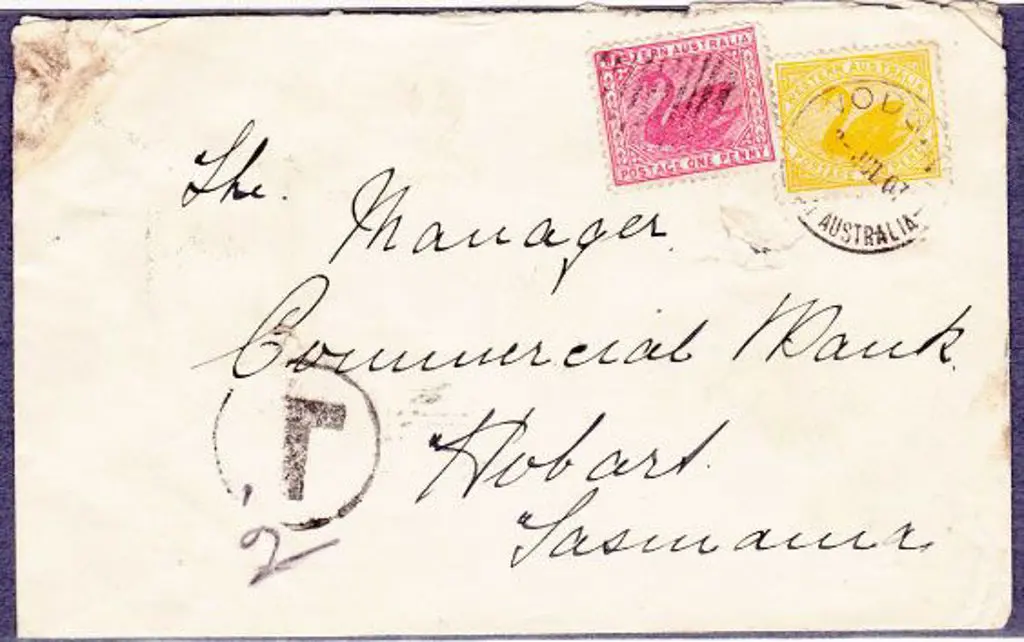 WESTERN AUSTRALIA
POSTAGE ONE PENNY
WESTERN AUSTRALIA
POSTAGE
AUSTRALIA
The.
Manager
Commercial Bank.
Hobart.
Tasmania.
T
2